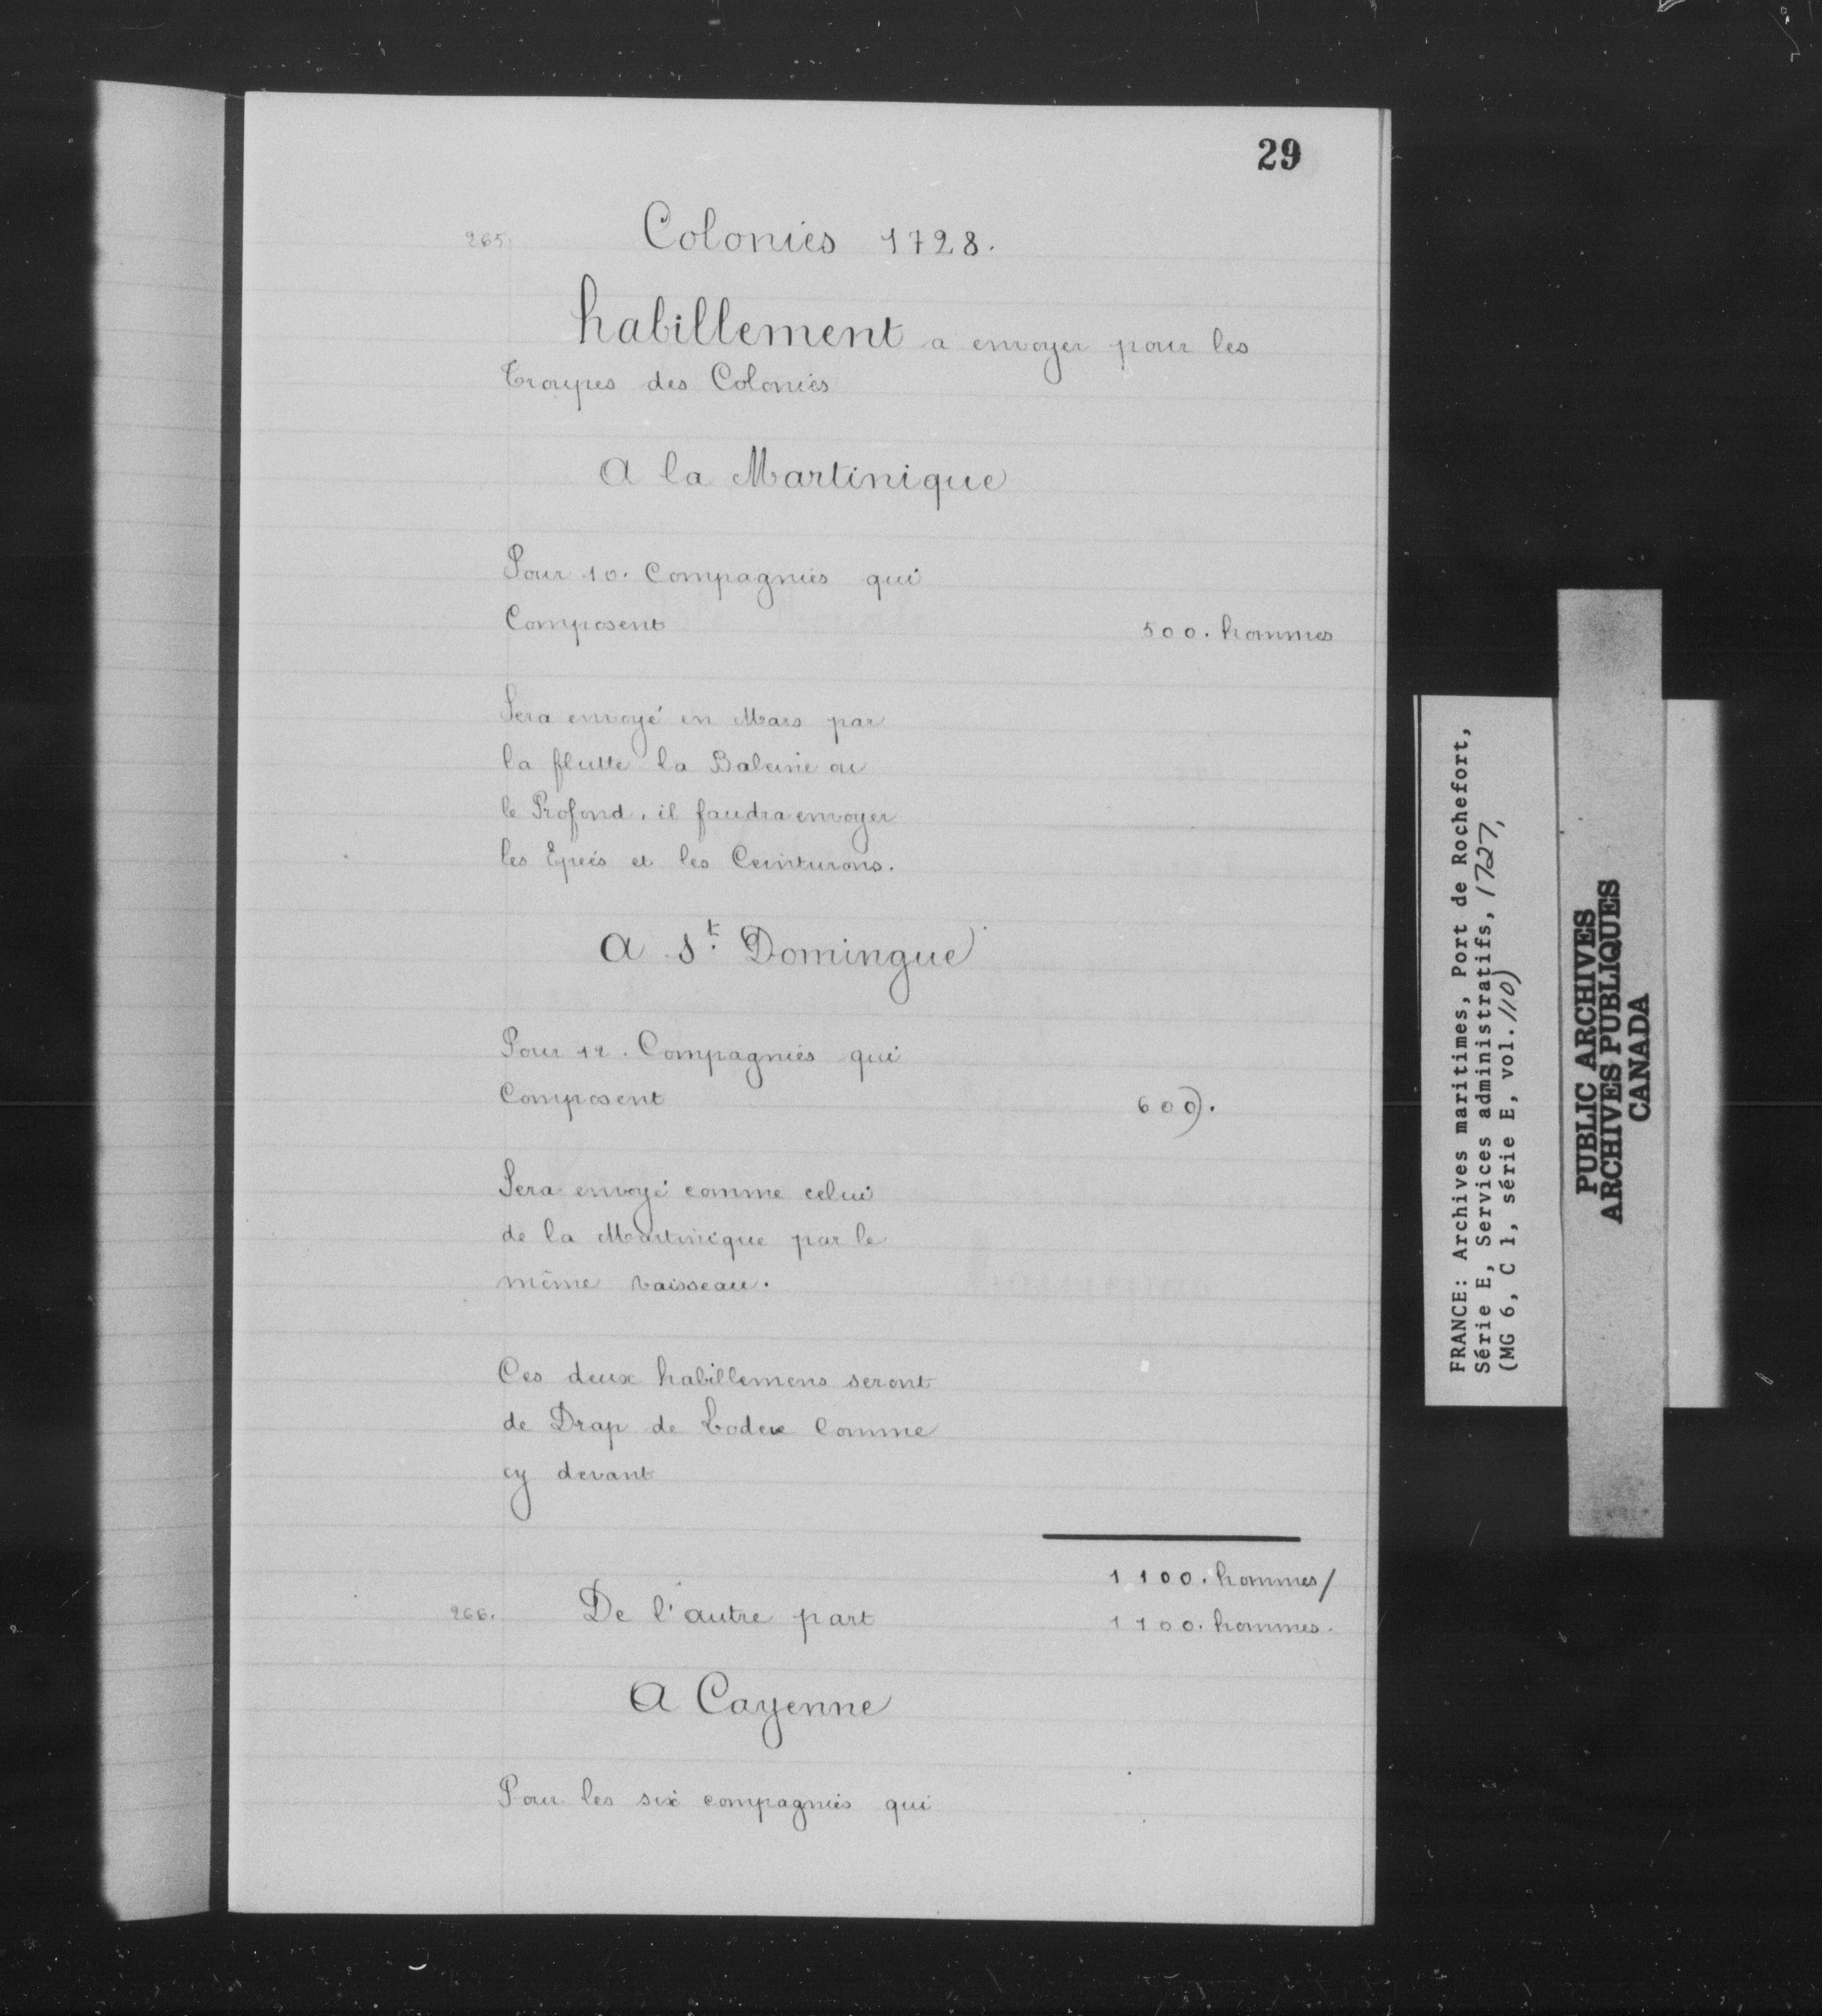 29
265 Colonies 1728.
habillement a envoyer pour les
Troupes des Colonies
A la Martinique
Pour 10. Compagnies qui
Composent 500. hommes
Sera envoyé en Mars par
la flutte la Baleine ou
le Profond, il faudra envoyer
les Epeés et les Ceinturons.
A St. Domingue
Pour 12. Compagnies qui
Composent 600.
Sera envoyé comme celui
de la Martinique par le
même vaisseau.
Ces deux habillemens seront
de Drap de Lodeve Comme
cy devant
1100. hommes/
266. De l'autre part 1100. hommes.
A Cayenne
Pour les six compagnies qui
FRANCE: Archives maritimes, Port de Rochefort,
Série E, Services administratifs, 1727,
(MG 6, C 1, série E, vol. 110)
PUBLIC ARCHIVES
ARCHIVES PUBLIQUES
CANADA